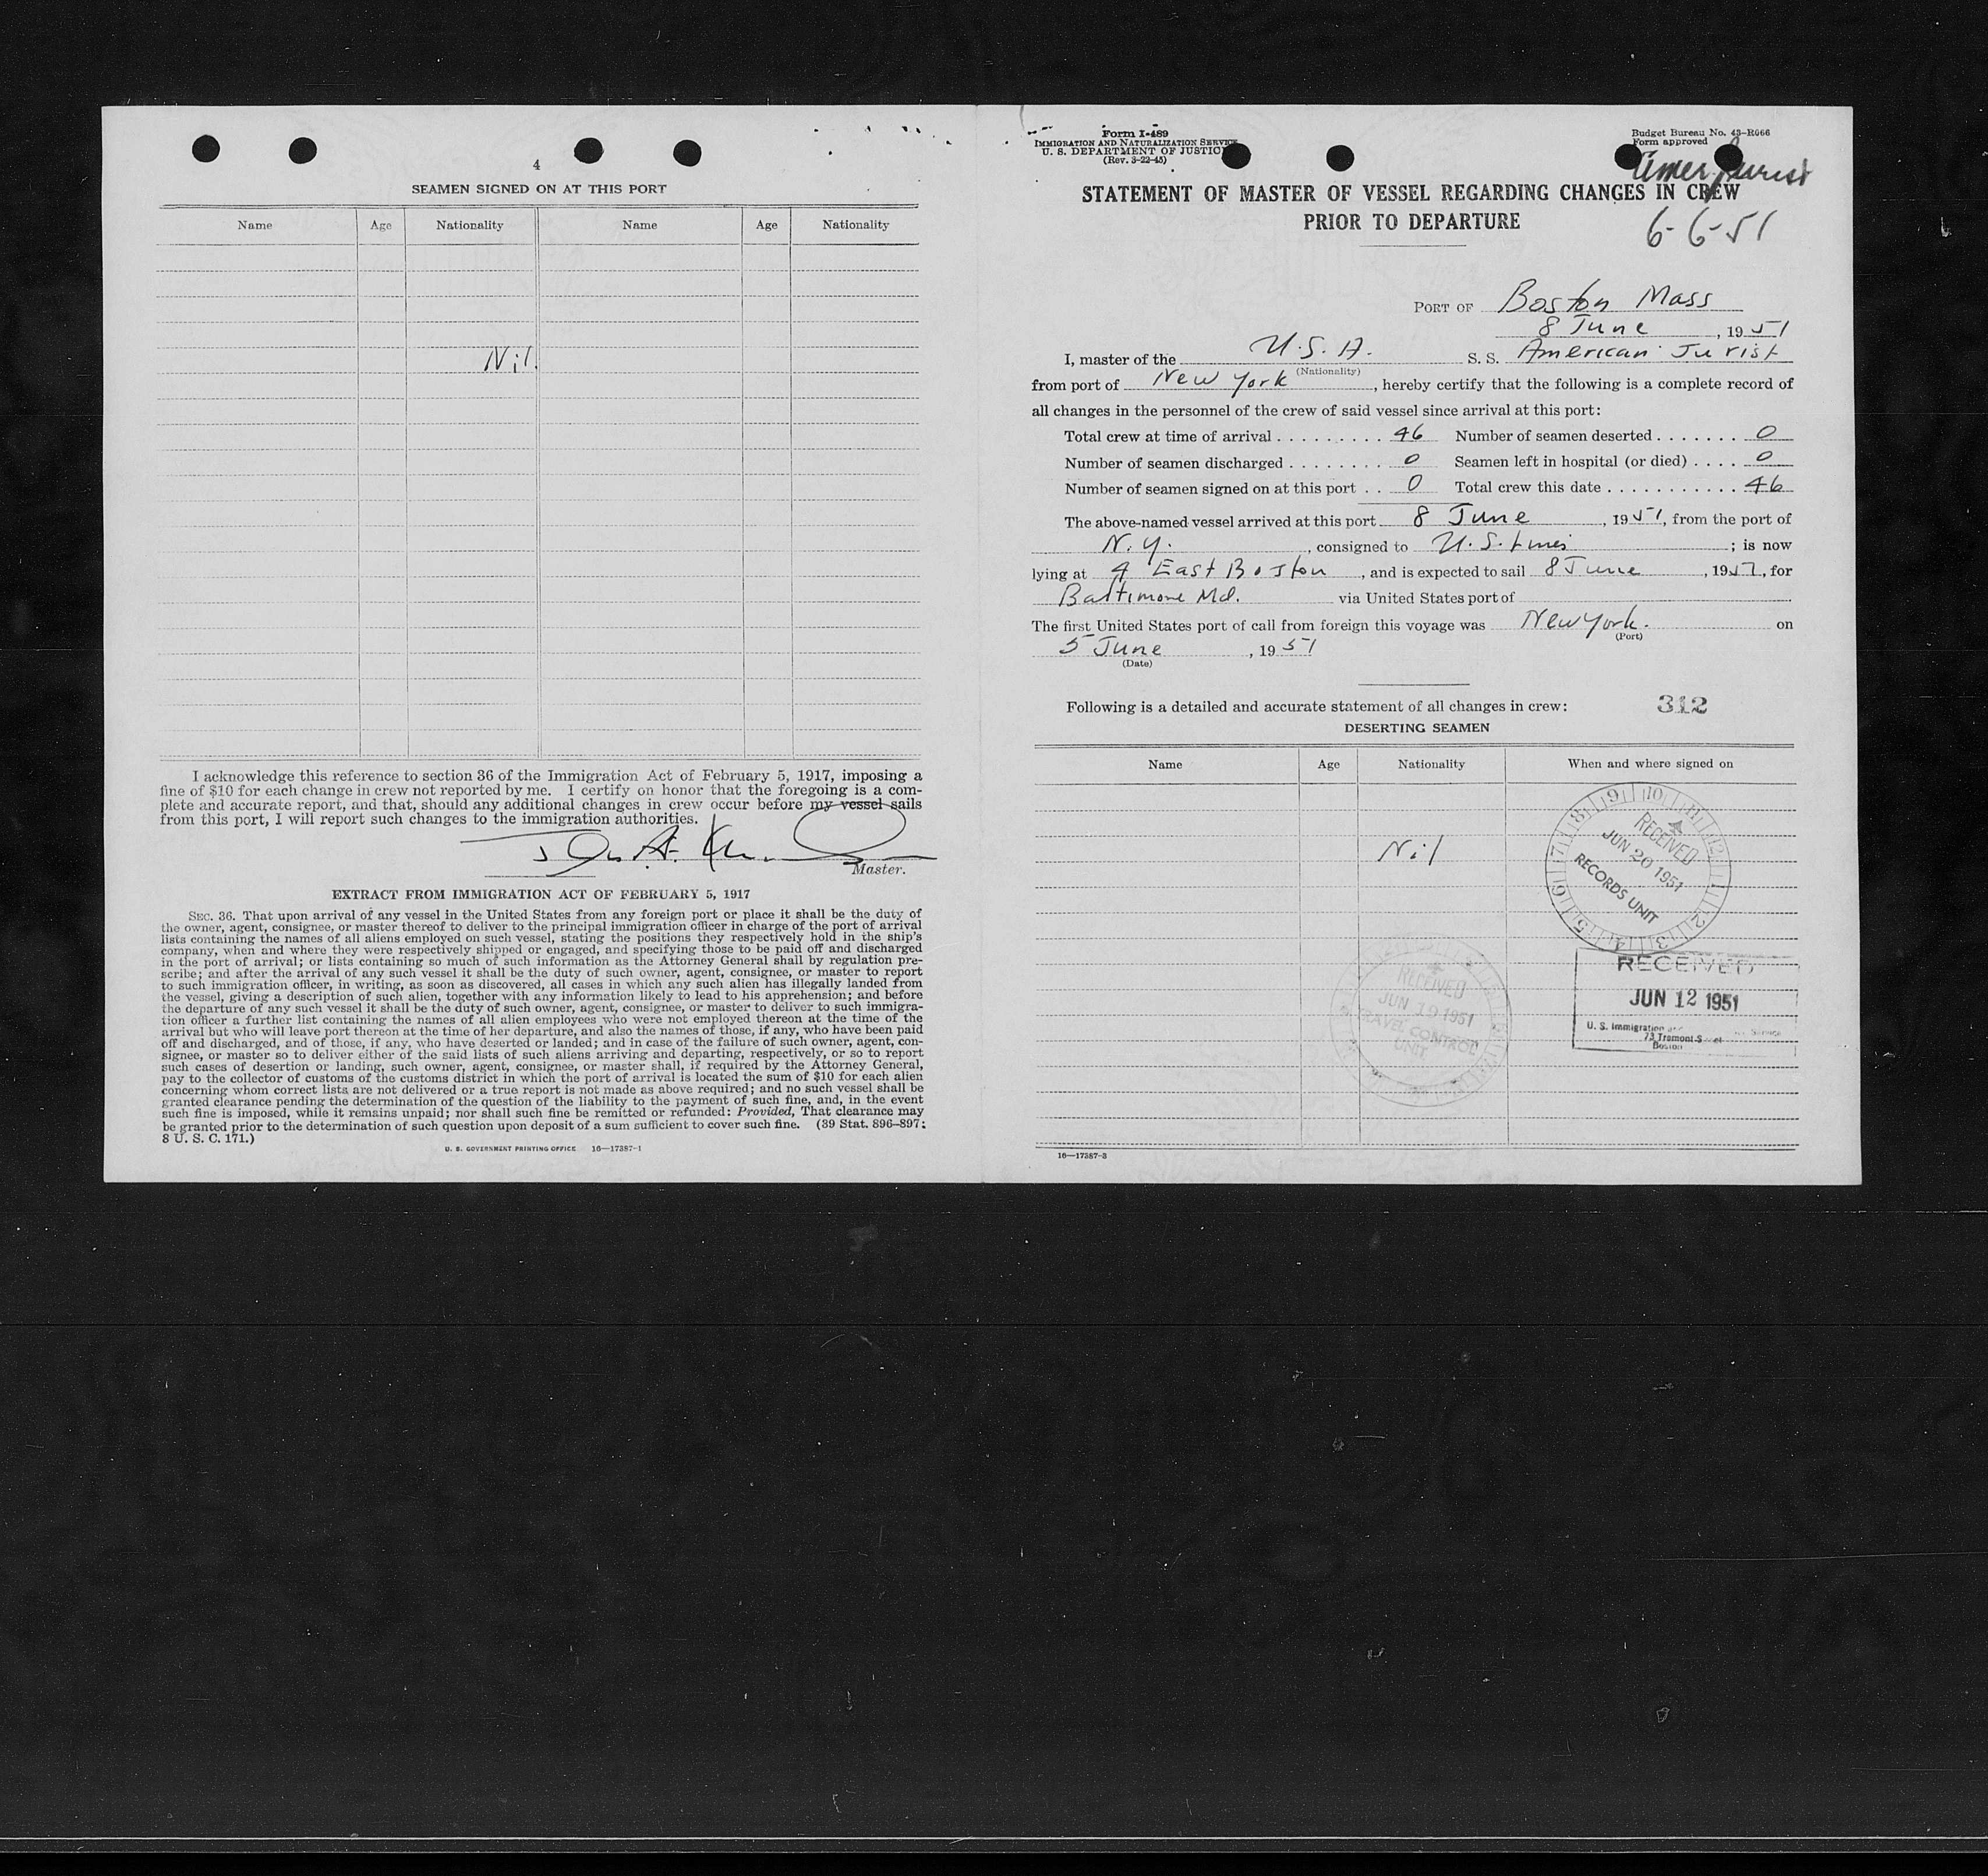 4
SEAMEN SIGNED ON AT THIS PORT
Name Age Nationality Name Age Nationality
Nil.
I acknowledge this reference to section 36 of the Immigration Act of February 5, 1917, imposing a
fine of $10 for each change in crew not reported by me. I certify on honor that the foregoing is a com-
plete and accurate report, and that, should any additional changes in crew occur before my vessel sails
from this port, I will report such changes to the immigration authorities.
Master.
EXTRACT FROM IMMIGRATION ACT OF FEBRUARY 5, 1917
SEC. 36. That upon arrival of any vessel in the United States from any foreign port or place it shall be the duty of
the owner, agent, consignee, or master thereof to deliver to the principal immigration officer in charge of the port of arrival
lists containing the names of all aliens employed on such vessel, stating the positions they respectively hold in the ship's
company, when and where they were respectively shipped or engaged, and specifying those to be paid off and discharged
in the port of arrival; or lists containing so much of such information as the Attorney General shall by regulation pre-
scribe; and after the arrival of any such vessel it shall be the duty of such owner, agent, consignee, or master to report
to such immigration officer, in writing, as soon as discovered, all cases in which any such alien has illegally landed from
the vessel, giving a description of such alien, together with any information likely to lead to his apprehension; and before
the departure of any such vessel it shall be the duty of such owner, agent, consignee, or master to deliver to such immigra-
tion officer a further list containing the names of all alien employees who were not employed thereon at the time of the
arrival but who will leave port thereon at the time of her departure, and also the names of those, if any, who have been paid
off and discharged, and of those, if any, who have deserted or landed; and in case of the failure of such owner, agent, con-
signee, or master so to deliver either of the said lists of such aliens arriving and departing, respectively, or so to report
such cases of desertion or landing, such owner, agent, consignee, or master shall, if required by the Attorney General,
pay to the collector of customs of the customs district in which the port of arrival is located the sum of $10 for each alien
concerning whom correct lists are not delivered or a true report is not made as above required; and no such vessel shall be
granted clearance pending the determination of the question of the liability to the payment of such fine, and, in the event
such fine is imposed, while it remains unpaid; nor shall such fine be remitted or refunded: Provided, That clearance may
be granted prior to the determination of such question upon deposit of a sum sufficient to cover such fine. (39 Stat. 896-897;
8 U. S. C. 171.)
U. S. GOVERNMENT PRINTING OFFICE 16—17387-1
Form I-489
IMMIGRATION AND NATURALIZATION SERVICE
U. S. DEPARTMENT OF JUSTICE
(Rev. 3-22-45)
Budget Bureau No. 43-R066
Form approved
Amer. Jurist
STATEMENT OF MASTER OF VESSEL REGARDING CHANGES IN CREW
PRIOR TO DEPARTURE
6-6-51
PORT OF Boston Mass
8 June, 1951
I, master of the U.S.A. S. S. American Jurist
(Nationality)
from port of New York, hereby certify that the following is a complete record of
all changes in the personnel of the crew of said vessel since arrival at this port:
Total crew at time of arrival . . . . . . . . . . 46 Number of seamen deserted . . . . . . . 0
Number of seamen discharged . . . . . . . . 0 Seamen left in hospital (or died) . . . . 0
Number of seamen signed on at this port . . 0 Total crew this date . . . . . . . . . . . 46
The above-named vessel arrived at this port 8 June, 1951, from the port of
N.Y., consigned to U.S. Lines; is now
lying at 4 East Boston, and is expected to sail 8 June, 1951, for
Baltimore Md. via United States port of
The first United States port of call from foreign this voyage was New York. on
(Port)
5 June, 1951
(Date)
Following is a detailed and accurate statement of all changes in crew: 312
DESERTING SEAMEN
Name Age Nationality When and where signed on
Nil
RECEIVED
JUN 20 1951
RECORDS UNIT
RECEIVED
JUN 19 1951
TRAVEL CONTROL
UNIT
RECEIVED
JUN 12 1951
U. S. Immigration Service
73 Tremont
Boston
16—17387-3